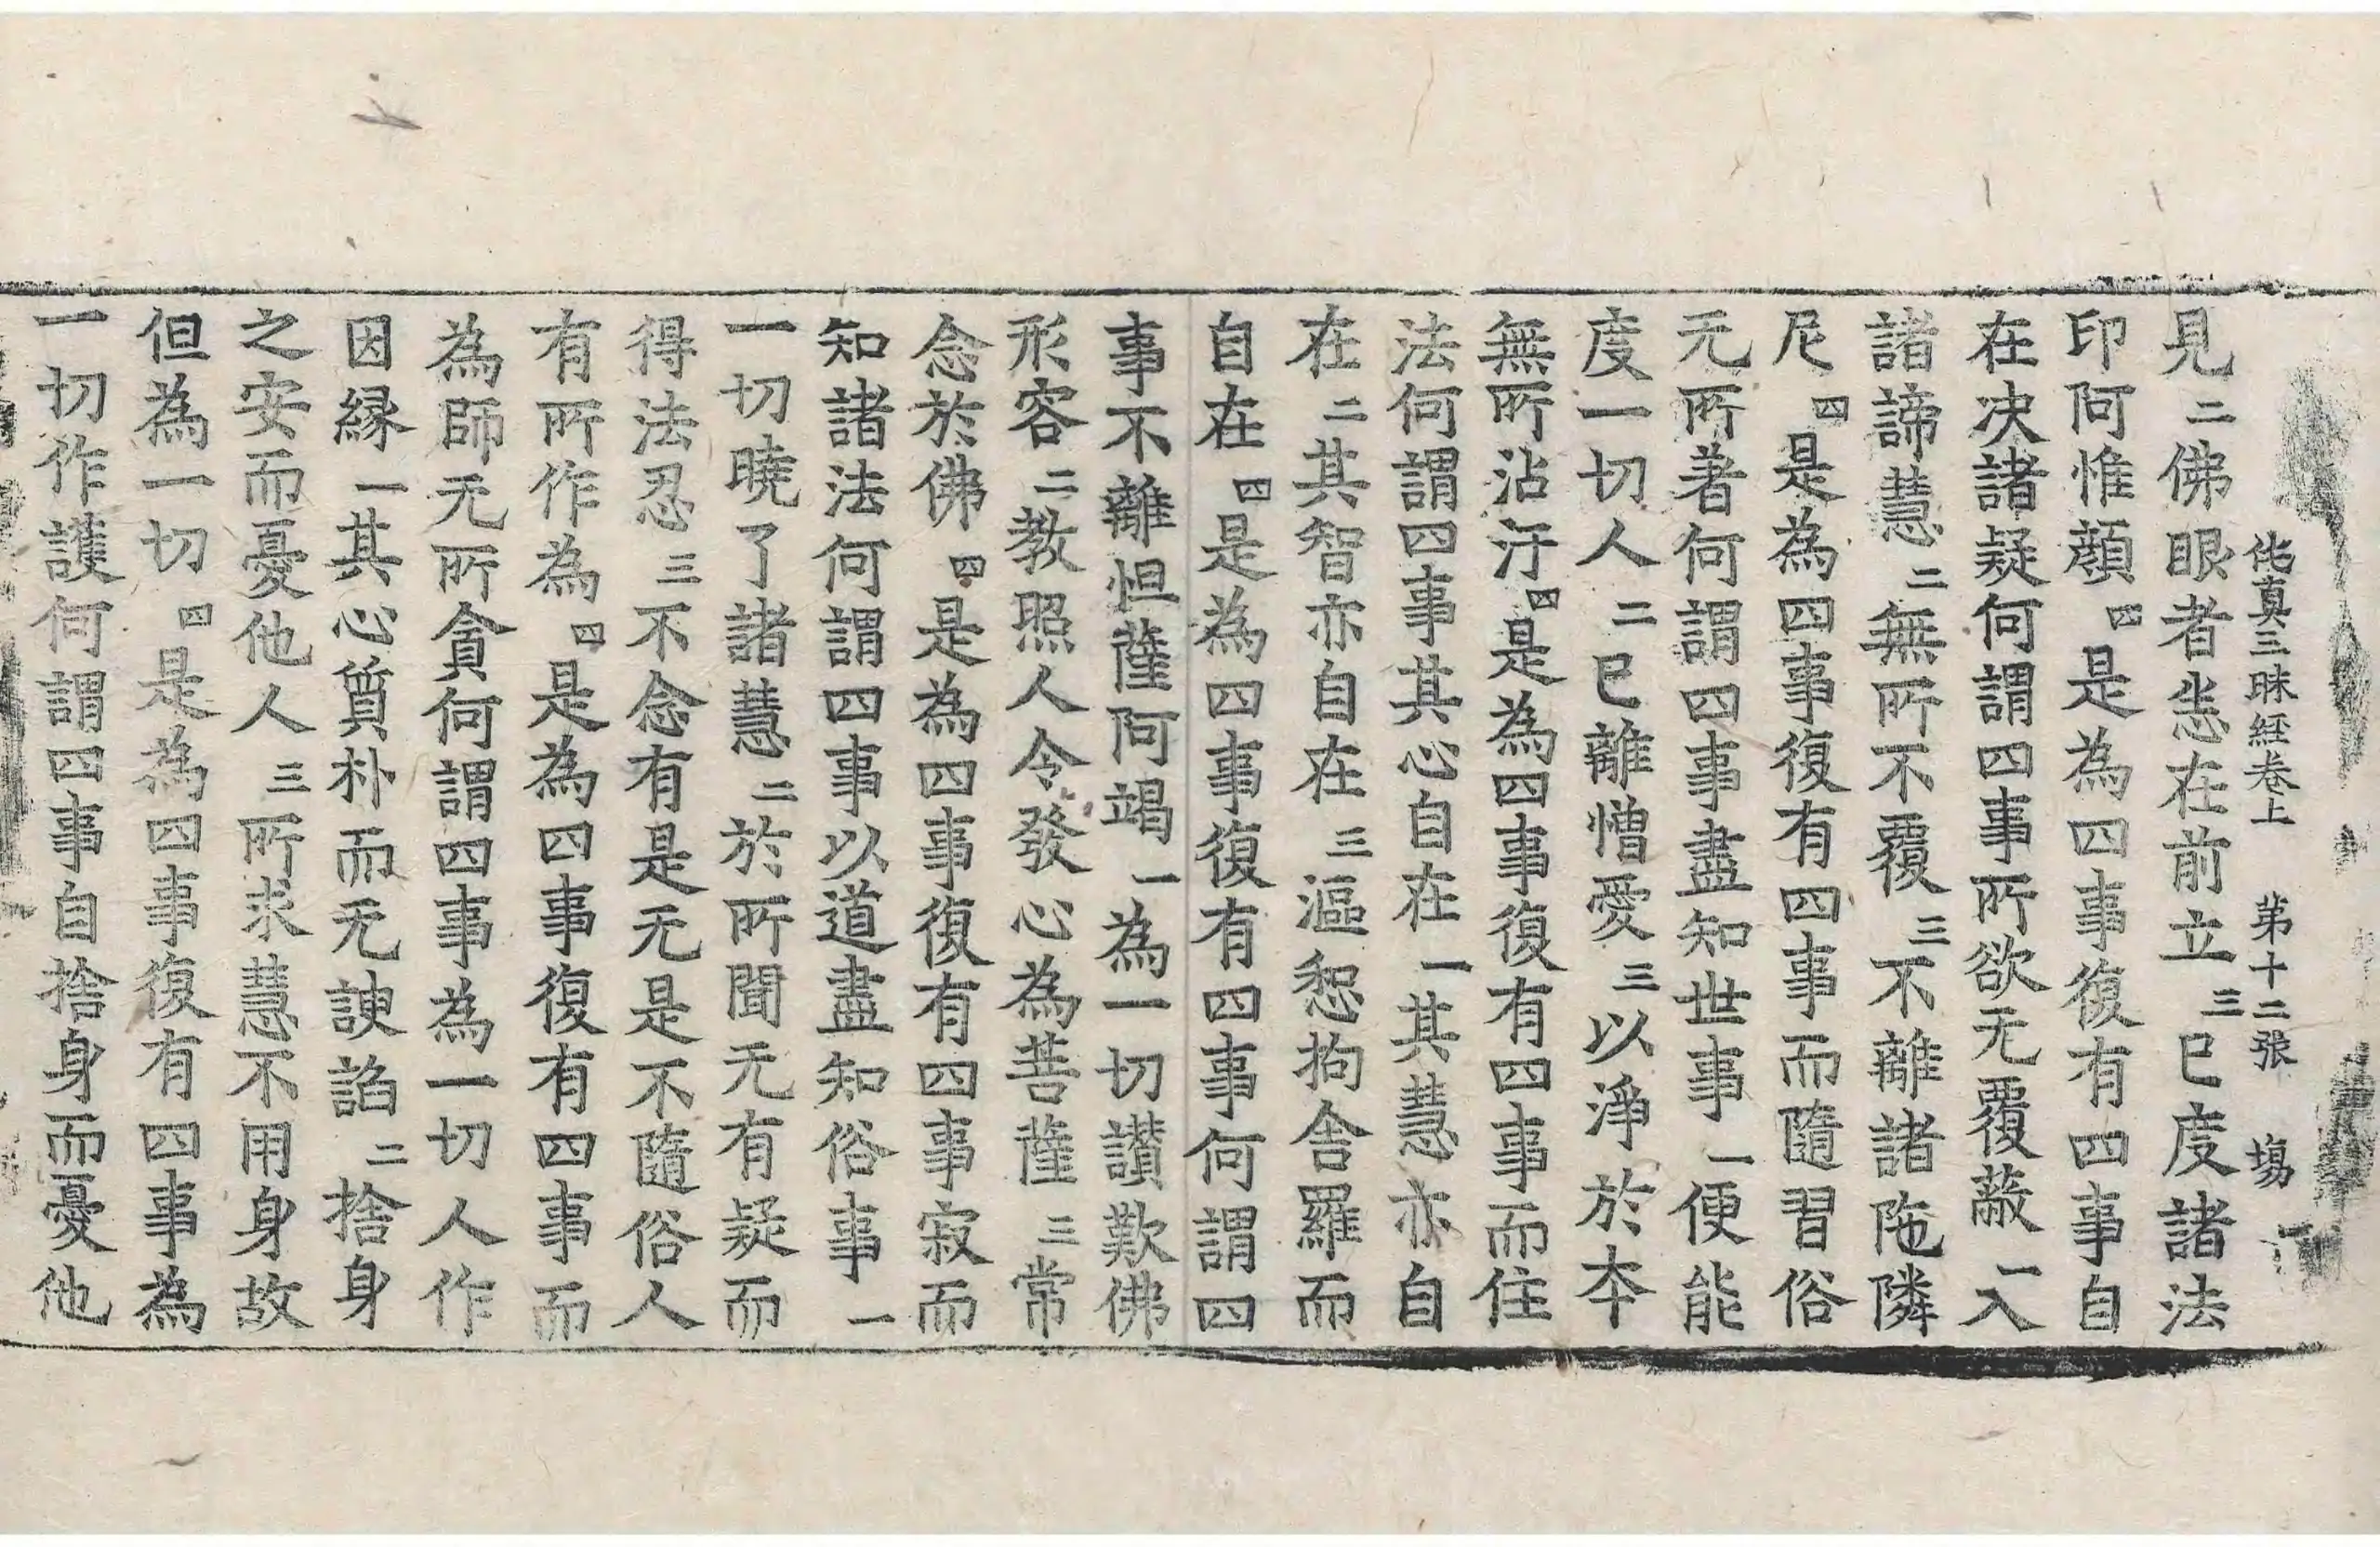 伅真三昧經卷上　第十二张　場
見二佛眼者悉在前立三已度諸法
印阿惟顔四是為四事復有四事自
在决諸疑何謂四事所欲无覆蔽一入
諸諦慧二無所不覆三不離諸陁隣
尼四是為四事復有四事而隨習俗
无所著何謂四事盡知世事一便能
度一切人二已離憎愛三以淨於夲
無所沾汙四是為四事復有四事而住
法何謂四事其心自在一其慧亦自
在二其智亦自在三漚惒拘舍羅而
自在四是為四事復有四事何謂四
事不離怛薩阿竭一為一切讃歎佛
形容二教照人令發心為菩薩三常
念於佛四是為四事復有四事寂而
知諸法何謂四事以道盡知俗事一
一切曉了諸慧二於所聞无有疑而
得法忍三不念有是无是不隨俗人
有所作為四是為四事復有四事而
為師无所貪何謂四事為一切人作
因縁一其心質朴而无諛諂二捨身
之安而憂他人三所求慧不用身故
但為一切四是為四事復有四事為
一切作護何謂四事自捨身而憂他